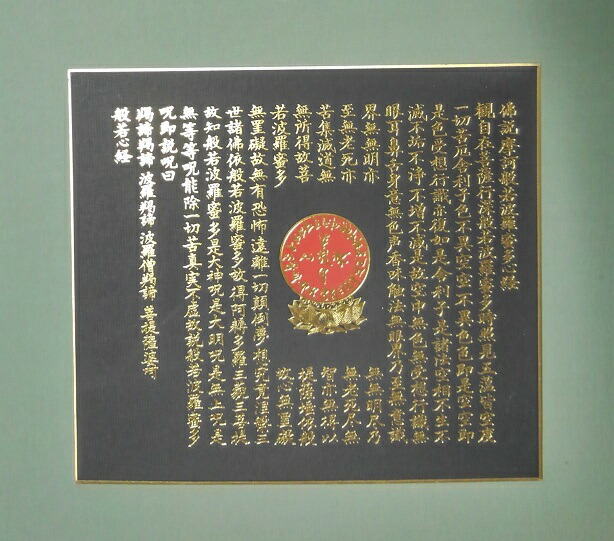 佛説摩訶般若波羅蜜多心経
観自在菩薩行深般若波羅蜜多時照見五蘊皆空度
一切苦厄舎利子色不異空空不異色色即是空空即
是色受想行識亦復如是舎利子是諸法空相不生不
滅不垢不浄不増不減是故空中無色無受想行識無
眼耳鼻舌身意無色声香味触法無眼界乃至無意識
界無無明亦 無無明尽乃
至無老死亦 無老死尽無
苦集滅道無 智亦無得以
無所得故菩 提薩埵依般
若波羅蜜多 故心無罣礙
無罣礙故無有恐怖遠離一切顛倒夢想究竟涅槃三
世諸佛依般若波羅蜜多故得阿耨多羅三藐三菩提
故知般若波羅蜜多是大神呪是大明呪是無上呪是
無等等呪能除一切苦真実不虚故説般若波羅蜜多
呪即説呪曰
羯諦羯諦 波羅羯諦 波羅僧羯諦 菩提薩婆訶
般若心経